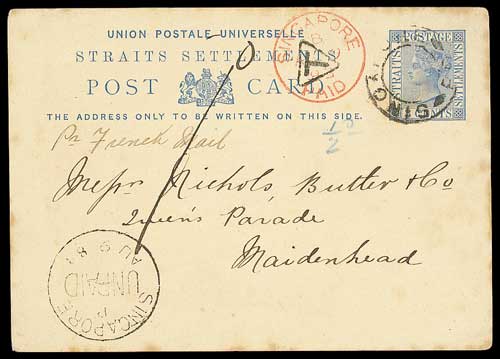 UNION POSTALE UNIVERSELLE
STRAITS SETTLEMENTS
POST CARD
THE ADDRESS ONLY TO BE WRITTEN ON THIS SIDE.
SINGAPORE
PAID
T
POSTAGE
STRAITS
CENTS
10
½d
Pr French Mail
Messrs Nichols Butter & Co
Queen's Parade
Maidenhead
SINGAPORE
UNPAID
AU 9 84